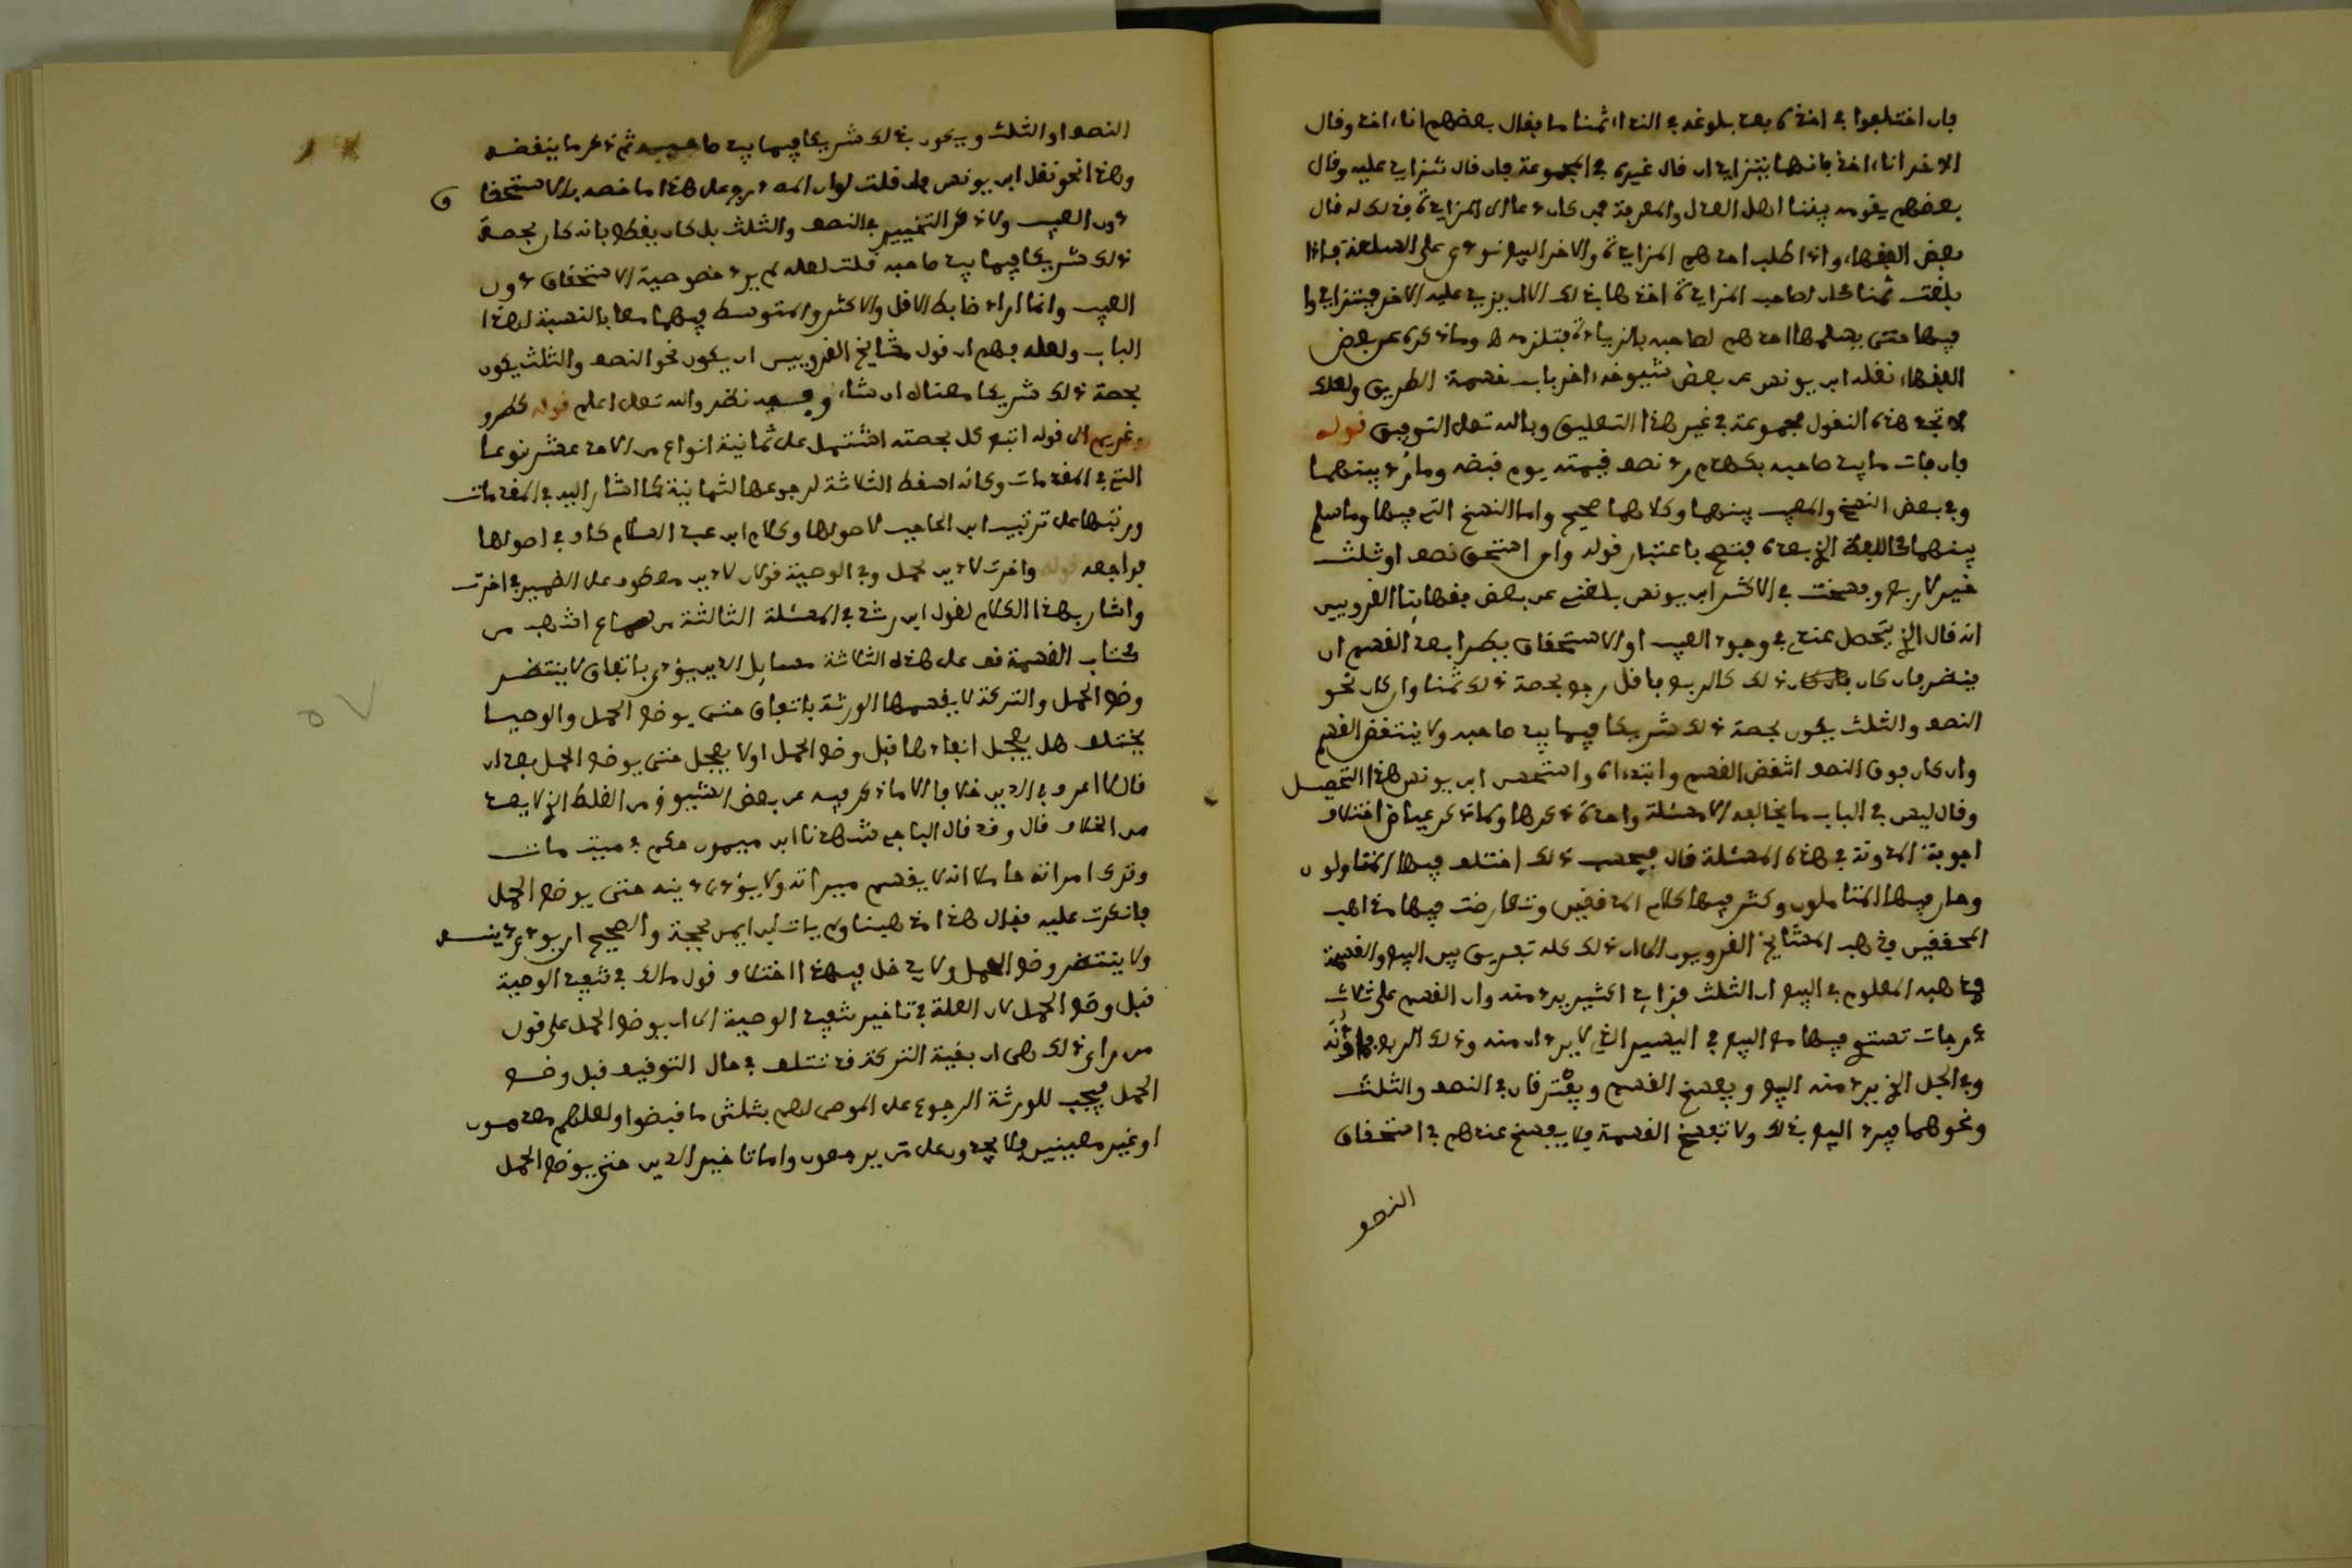 فان اختلفوا في اخذه بعد بلوغه في النداء ثمنا ما فقال بعضهم انا ءاخذ وقال
الاخر انا ءاخذ فانهما يتزايدان قال غيره في المجموعة فان قال نتزايد عليه وقال
بعضهم يقومه بيننا اهل العدل والمعرفة فمن كان دعا الى المزايدة فذلك له قال
بعض الفقهاء واذا طلب احدهم المزايدة والاخر البيع نودي على السلعة فاذا
بلغت ثمنا كان لصاحب المزايدة اخذها بذلك الا ان يزيد عليه الاخر فيتزايدوا
فيها حتى يسلمها احدهم لصاحبه بالزيادة فتلزمه وما ذكره عن بعض
الفقهاء نقله ابن يونس عن بعض شيوخه ءاخر باب قسمة الطريق ولعلك
لا تجد هذه النقول مجموعة في غير هذا التعليق وبالله تعلى التوفيق قوله
فان فات ما بيد صاحبه بكهدم رد نصف قيمته يوم قبضه وما رد بينهما
وفي بعض النسخ والمعيب بينهما وكلاهما صحيح واما النسخ التي فيها وما سلم
بينهما اللفظ الذي بعده فتصح باعتبار قوله وان استحق نصف او ثلث
خير لا ربع وفسخت في الاكثر ابن يونس بلغني عن بعض فقهائنا القرويين
انه قال الذي يتحصل عندي في وجود العيب او الاستحقاق يطرا بعد القسم ان
ينظر فان كان ذلك كالربع فاقل رجع بحصة ذلك ثمنا وان كان نحو
النصف والثلث يكون بحصة ذلك شريكا فيما بيد صاحبه ولا ينتقض القسم
وان كان فوق النصف انتقض القسم وابتداه واستحسن ابن يونس هذا التحصيل
وقال ليس في الباب ما يخالفه الا مسئلة واحدة ذكرها ولما ذكر عياض اختلاف
اجوبة المدونة في هذه المسئلة قال فبحسب ذلك اختلف فيها المتاولون
وحار فيها المتاملون وكثر فيها كلام المدققين وتعارضت فيها مذاهب
المحققين فذهب المشايخ القرويون الى ان ذلك كله تفريق بين البيع والقسمة
فمذهبه المعلوم في البيع ان الثلث فزايد كثير يرد منه وان القسم على ثلاث
درجات تستوي فيها مع البيع في اليسير الذي لا يردان منه وذلك الربع فما دونه
وفي الجل الذي يرد منه البيع ويفسخ القسم ويفترقان في النصف والثلث
ونحوهما فيرد البيع بذلك ولا تفسخ القسمة فلا يفسخ عندهم في استحقاق
النصف
النصف او الثلث ويكون بذلك شريكا فيما بيد صاحبه ثم ذكر ما ينقضه
وهذا نحو نقل ابن يونس فان قلت لو ان المصنف درج على هذا ما خصه بالاستحقاق
دون العيب ولا ذكر التخيير في النصف والثلث بل كان يقطع بانه كان بحصة
ذلك شريكا فيما بيد صاحبه قلت لعله لم يرد خصوصية الاستحقاق دون
العيب وانما اراد ضابط الاقل والاكثر والمتوسط فيهما معا بالنسبة لهذا
الباب ولعله فهم ان قول مشايخ القرويين ان يكون نحو النصف والثلث يكون
بحصة ذلك شريكا معناه ان شاء وفيه نظر والله تعلى اعلم قوله كطرو
غريم الى قوله اتبع كل بحصته اشتمل على ثمانية انواع من الاحد عشر نوعا
التي في المقدمات وكانه اسقط الثلاثة لرجوعها لثمانية كما اشار اليه في المقدمات
ورتبها على ترتيب ابن الحاجب لاصولها وكلام ابن عبد السلام كاف في اصولها
فراجعه قوله واخرت لا دين لحمل وفي الوصية قولان لا دين معطوف على الضمير في اخرت
واشار بهذا الكلام لقول ابن رشد في المسئلة الثالثة من سماع اشهب من
كتاب القسمة قف على هذه الثلاثة مسايل الدين يؤدى باتفاق لا ينتظر
وضع الحمل والتركة لا يقسمها الورثة باتفاق حتى يوضع الحمل والوصايا
يختلف هل يعجل انفاذها قبل وضع الحمل او لا يعجل حتى يوضع الحمل بعد ان
قال لا اعرف في الدين خلافا الا ما ذكر فيه عن بعض الشيوخ من الغلط الذي لا يعد
من الخلاف قال وقد قال الباجي شهدنا ابن ميمون حكم في ميت مات
وترك امراته حاملا انه لا يقسم ميراثه ولا يؤدى دينه حتى يوضع الحمل
فانكرت عليه فقال هذا مذهبنا ولم يات لين ايمن بحجة والصحيح ان يودى دينه
ولا ينتظر وضع الحمل ولا يدخل فيهذا اختلاف قول مالك في تنفيذ الوصية
قبل وضع الحمل لان العلة في تاخير تنفيذ الوصية الى ان يوضع الحمل على قول
من راى ذلك هي ان بقية التركة قد تتلف في حال التوقيف قبل وضع
الحمل فيجب للورثة الرجوع على الموصى لهم بثلثي ما قبضوا ولعلهم معدمون
او غير معينين فلا يجدون على من يرجعون واما تاخير الدين حتى يوضع الحمل